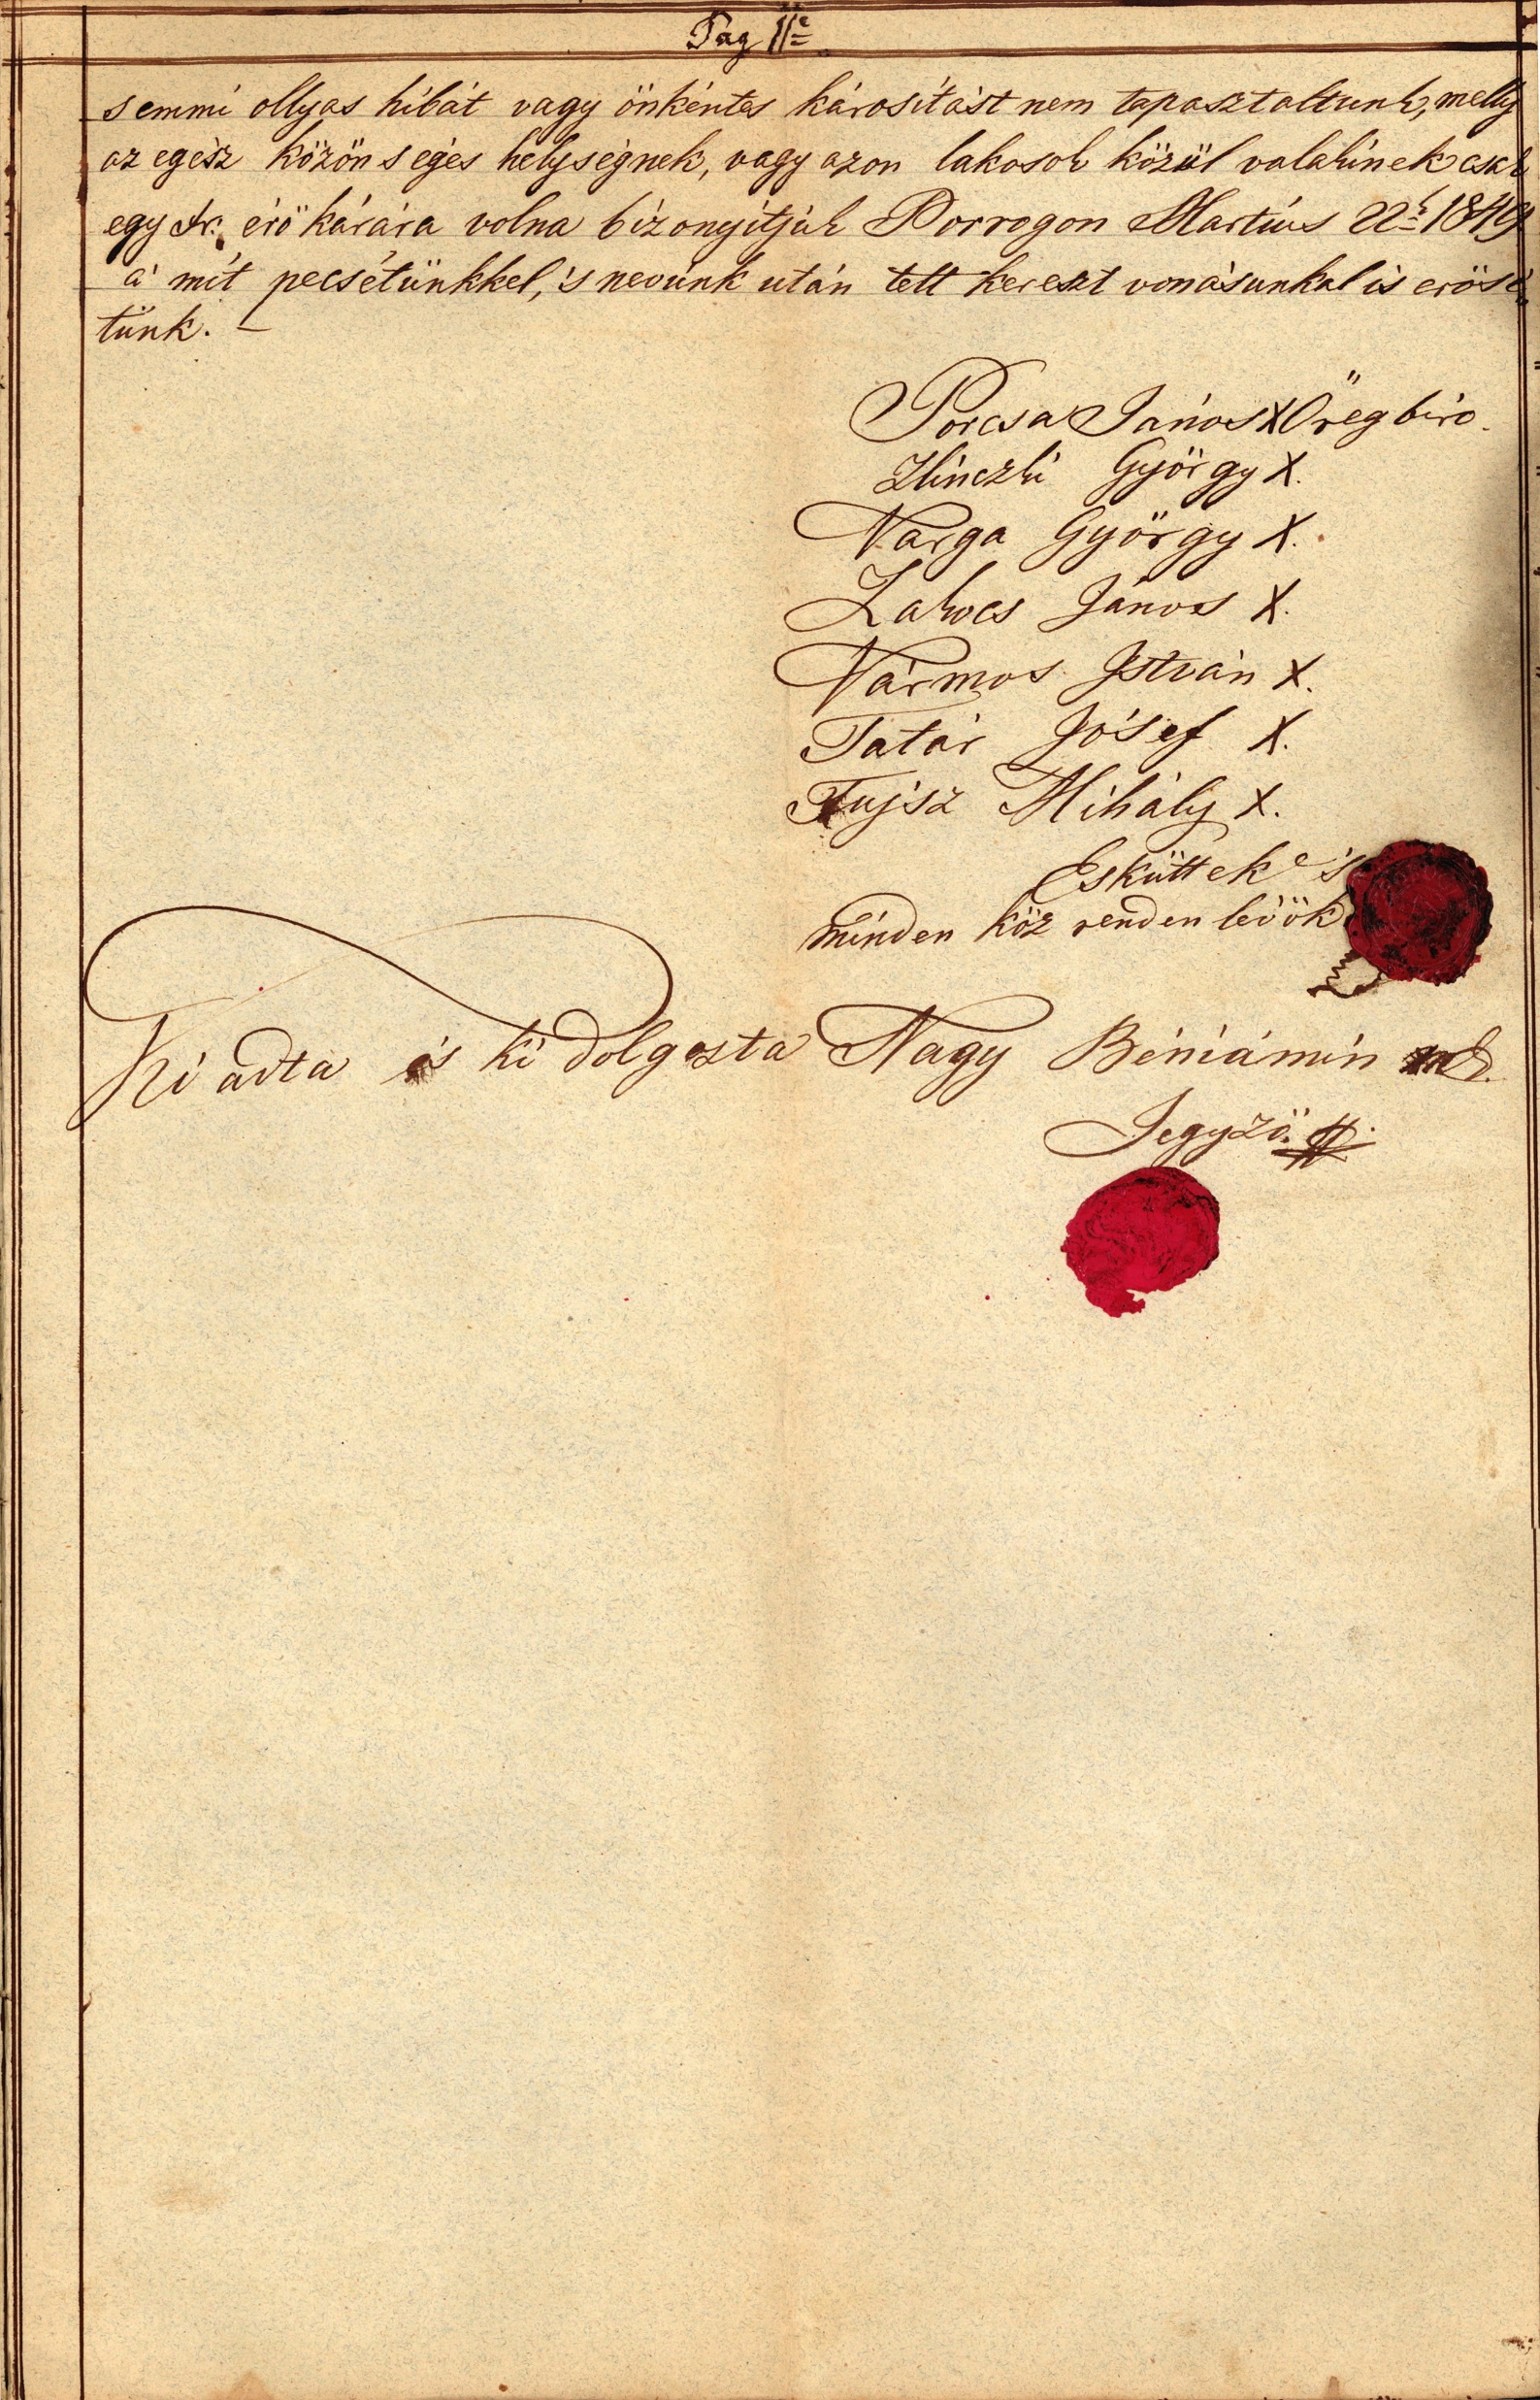 Pag 11e
semmi ollyas hibát vagy önkéntes kárositást nem tapasztaltunk, melly
az egész közönséges helységnek, vagy azon lakosok közül valakinek csak
egy xr. érő kárára volna bizonyitjuk Porrogon Martius 22k 1849
á mit pecsétünkkel, 's nevünk után tett kereszt vonásunkal is erősi
tünk. —
Porcsa János X Öregbiró.
György X.
Varga György X.
Lakocs János X.
Vármos István X.
Tatár Jósef X.
Fujsz Mihály X.
Esküttek és
minden köz renden levöök
Ki adta és ki dolgozta Nagy Béniámin mk.
Jegyző.